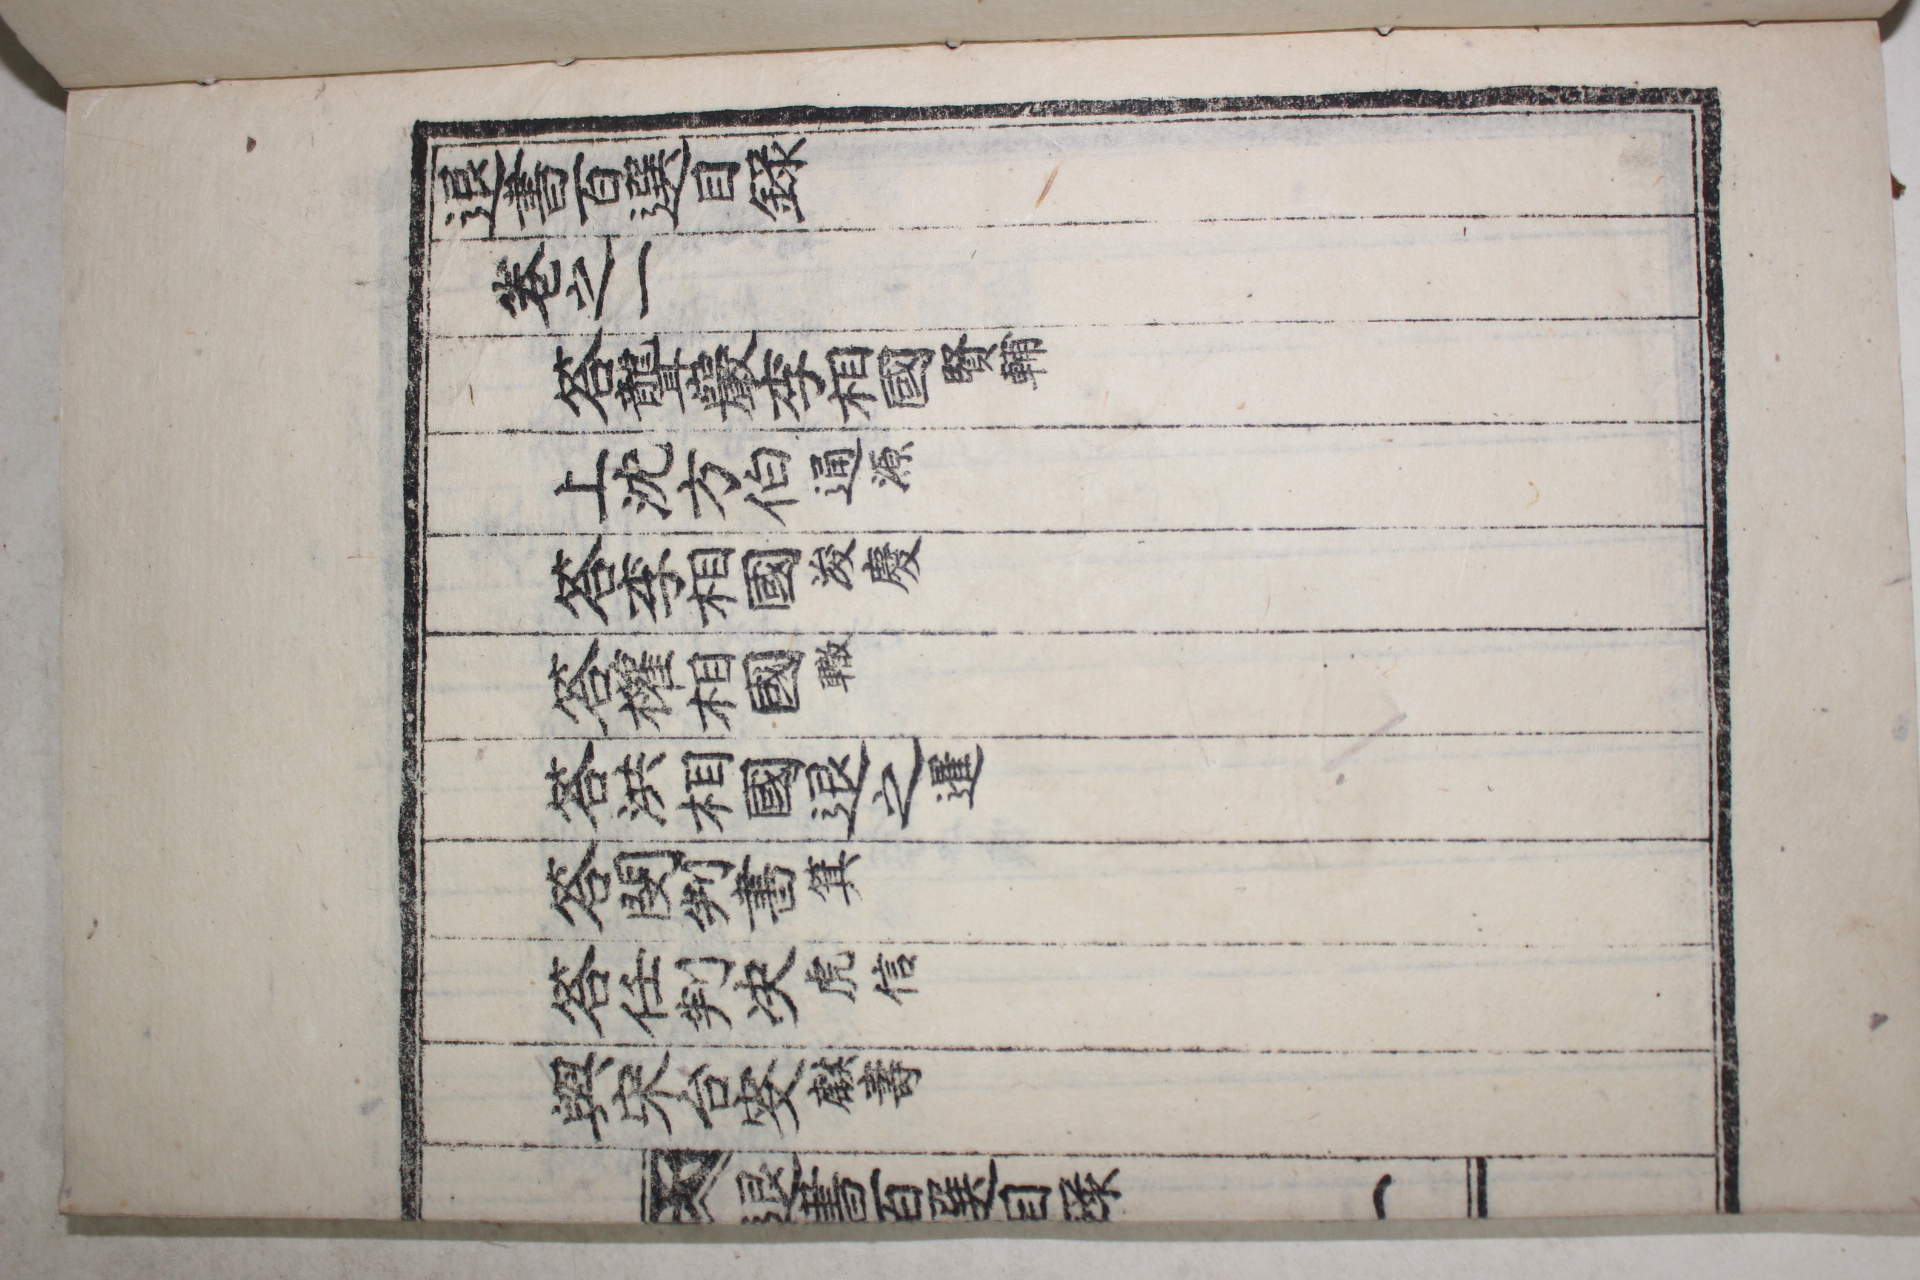 退書百選目錄
卷之一
答聾巖李相國賢輔
上沈方伯通源
答李相國浚慶
答權相國轍
答洪相國退之暹
答閔判書箕
答任判决虎信
與宋台叟麒壽
退書百選目錄 一